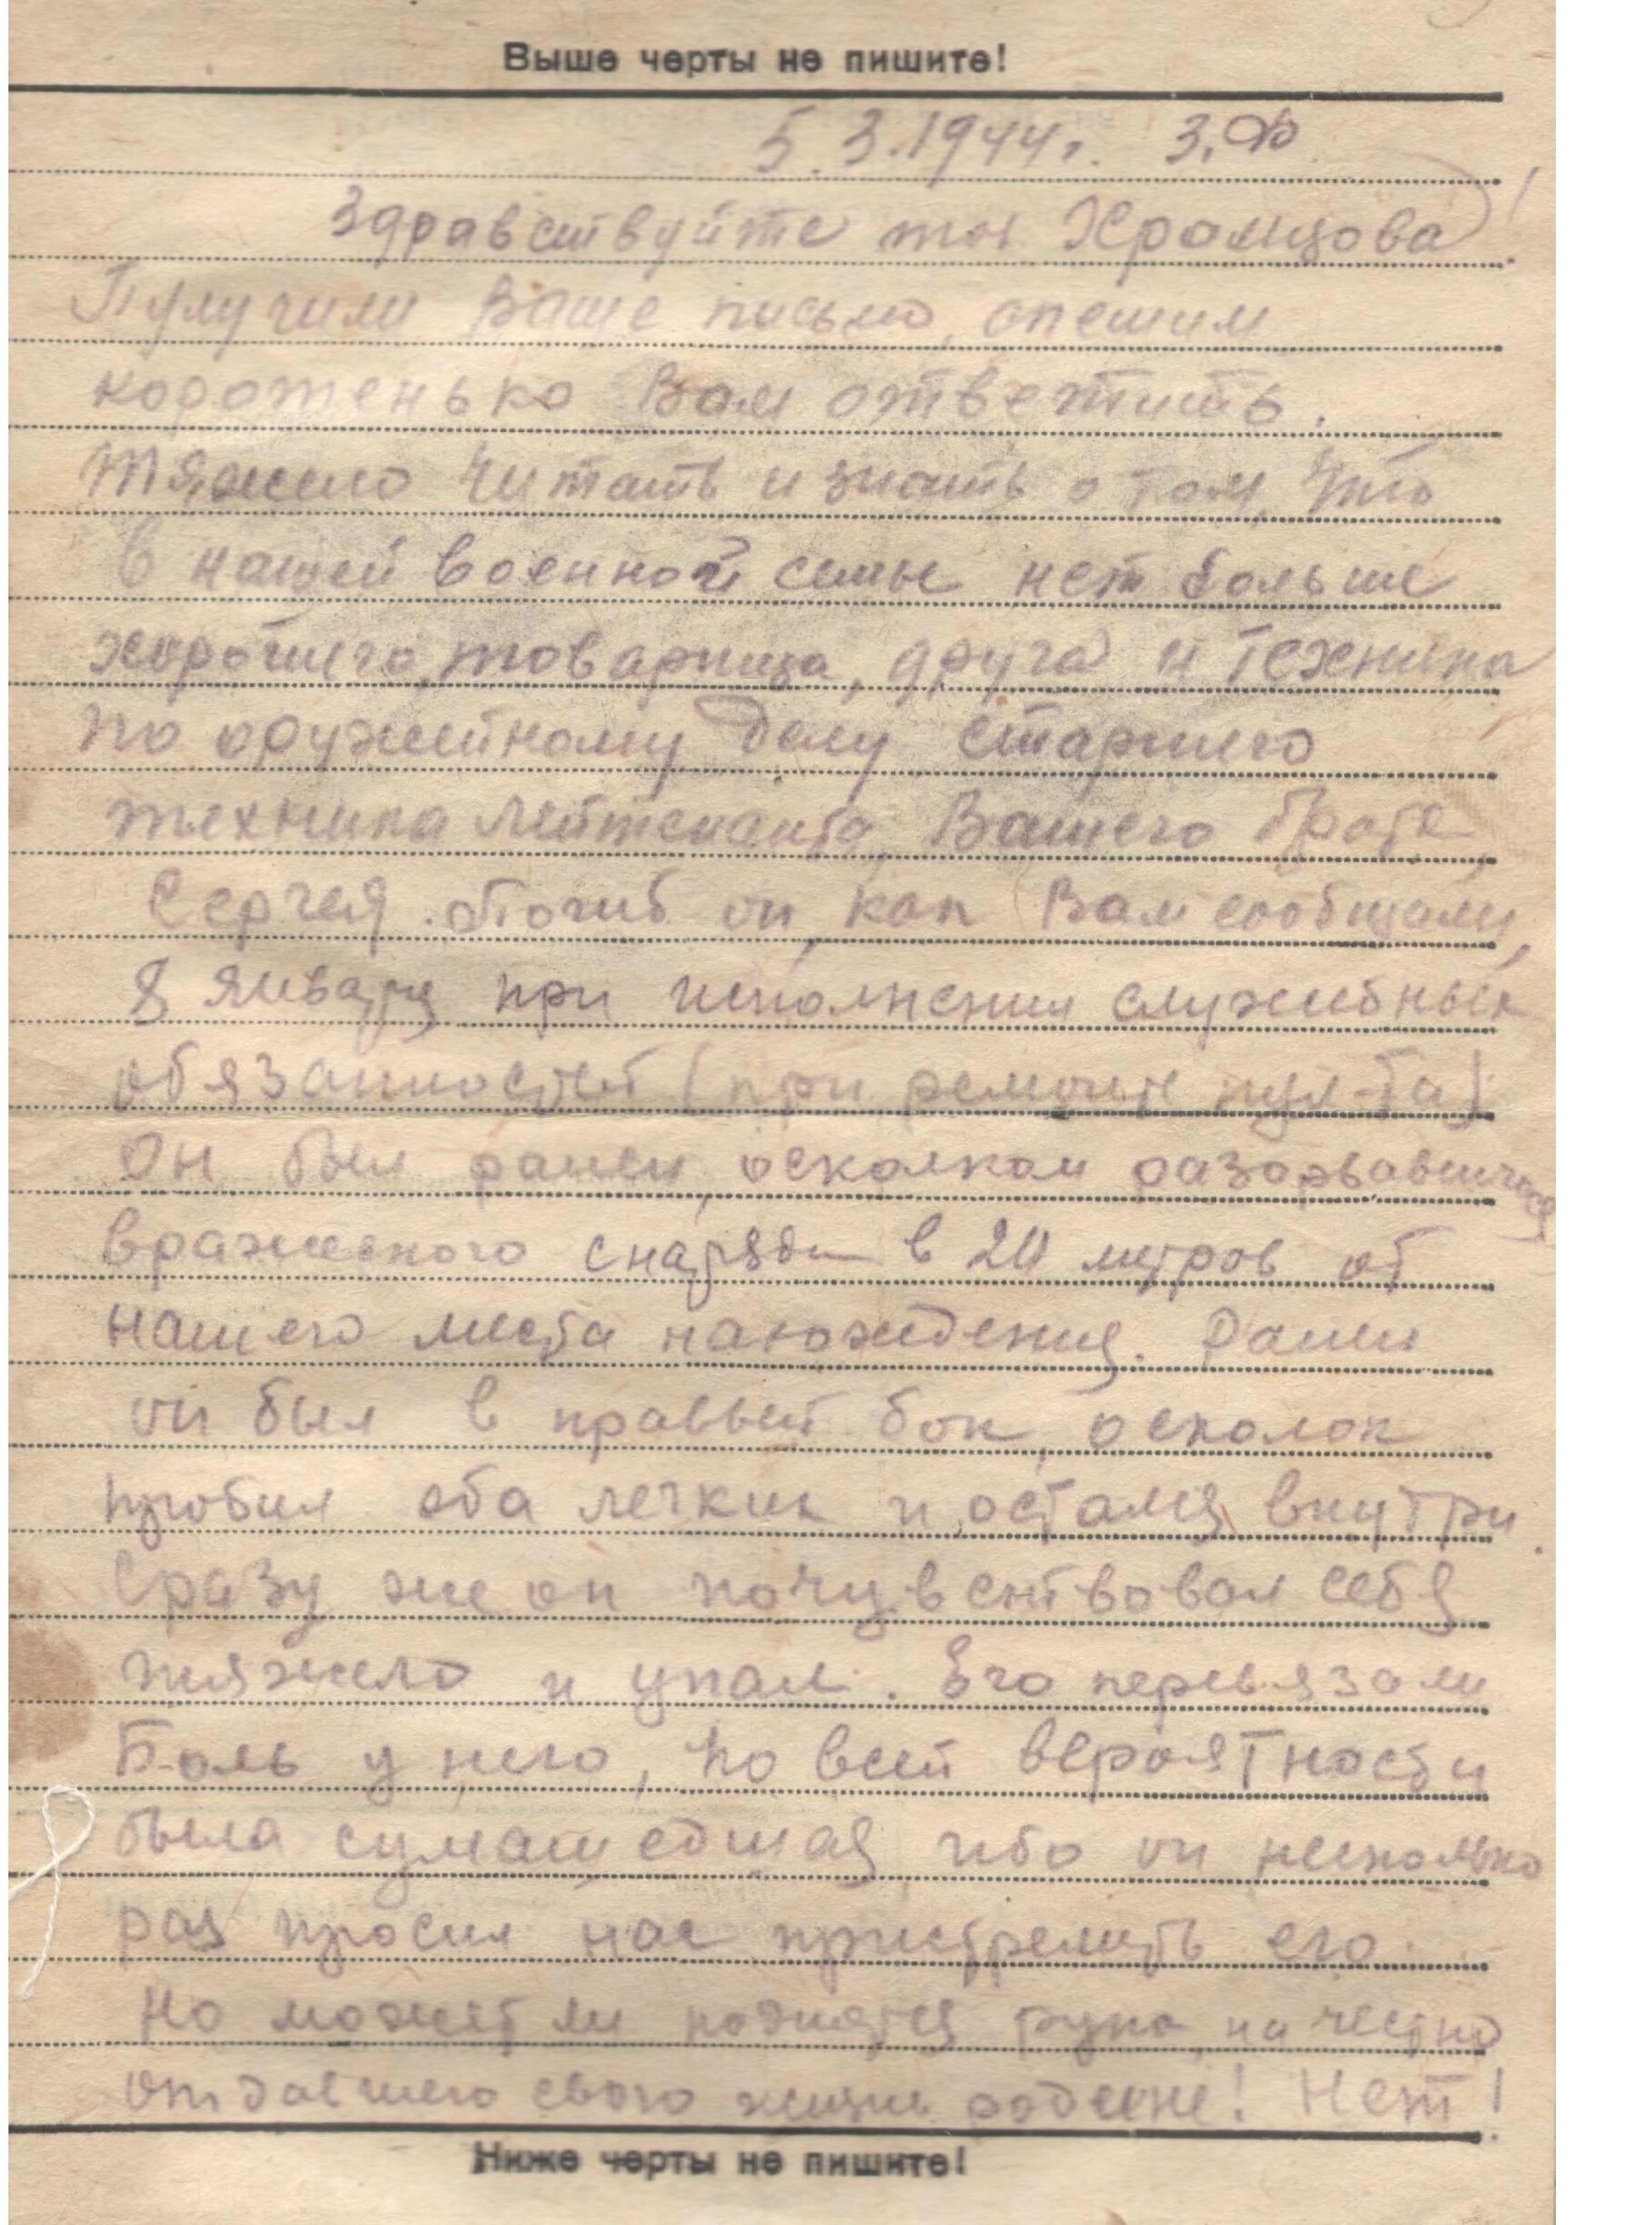 Выше черты не пишите!
5.3.1944г. З.Ф
Здравствуйте тов Храмцова!
Пулучили Ваше письмо, спешим
коротенько Вам ответить.
Тяжело читать и знать о том, что
в нашей военной семье нет больше
хорошего товарища, друга и техника
по оружейному делу старшего
техника лейтенанта, Вашего брата,
Сергея. Погиб он, как Вам сообщали,
8 января при исполнении служебных
обязанностей (при ремонте пул-та)
Он был ранен, осколком разорвавшегося
вражеского снаряда в 20 метров от
нашего места нахождения. Ранен
он был в правый бок, осколок
пробил оба легких и остался внутри.
Сразу же он почувствовал себя
тяжело и упал. Его перевязали
Боль у него, по всей вероятности
была сумашедшая ибо он несколько
раз просил нас пристрелить его.
Но может ли поднятся рука на честно
отдавшего свою жизнь родине! Нет!
Ниже черты не пишите!